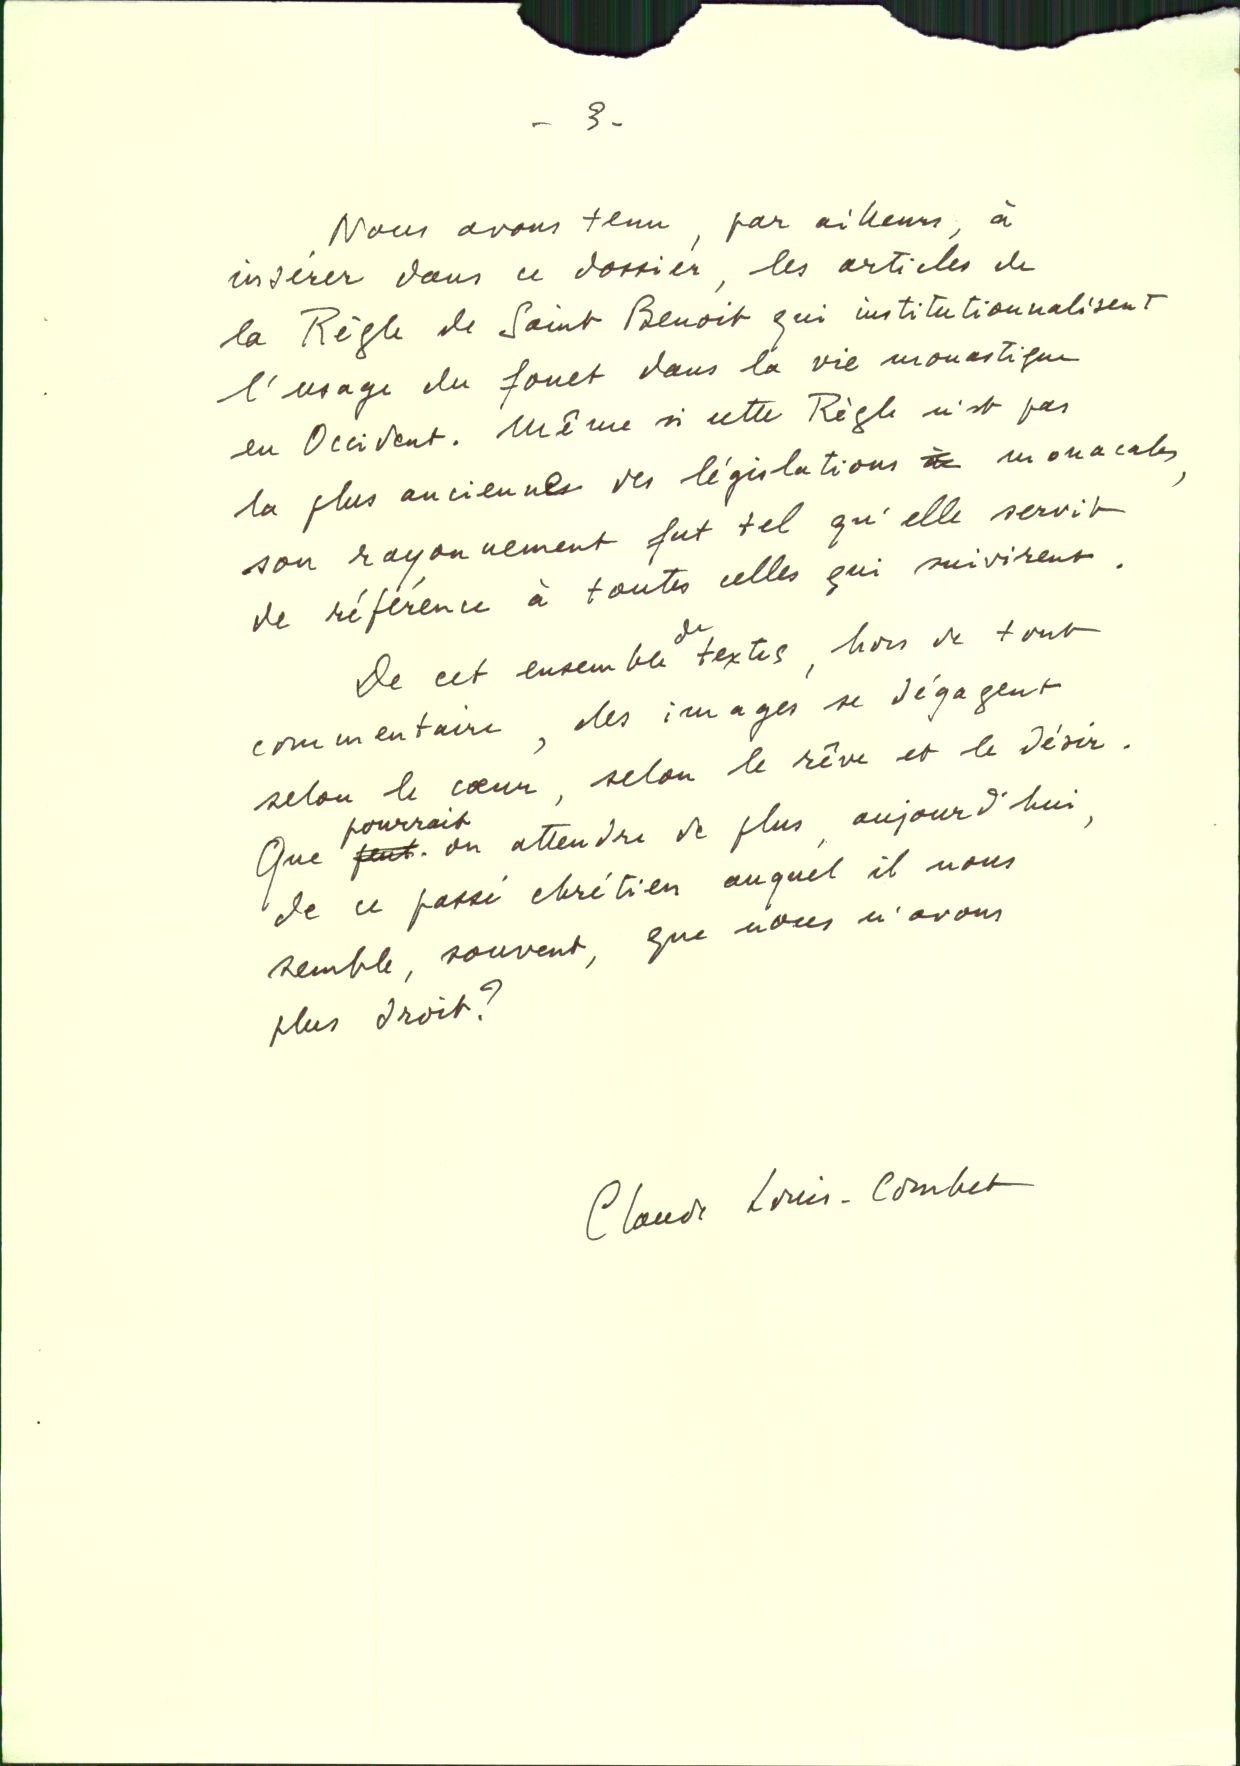 - 3 -
Nous avons tenu, par ailleurs, à
insérer dans ce dossier, les articles de
la Règle de Saint Benoit qui institutionnalisent
l'usage du fouet dans la vie monastique
en Occident. Même si cette Règle n'est pas
la plus anciennes des législations monacales,
son rayonnement fut tel qu'elle servit
de référence à toutes celles qui suivirent.
De cet ensemble de textes, hors de tout
commentaire, des images se dégagent
selon le cœur, selon le rêve et le désir.
Que pourrait peut-on attendre de plus, aujourd'hui,
de ce passé chrétien auquel il nous
semble, souvent, que nous n'avons
plus droit?
Claude Louis-Combet